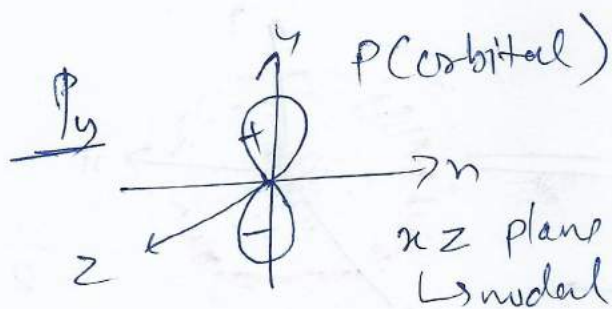 y
P(orbital)
Py
+
x
-
z
xz plane
↳ nodal